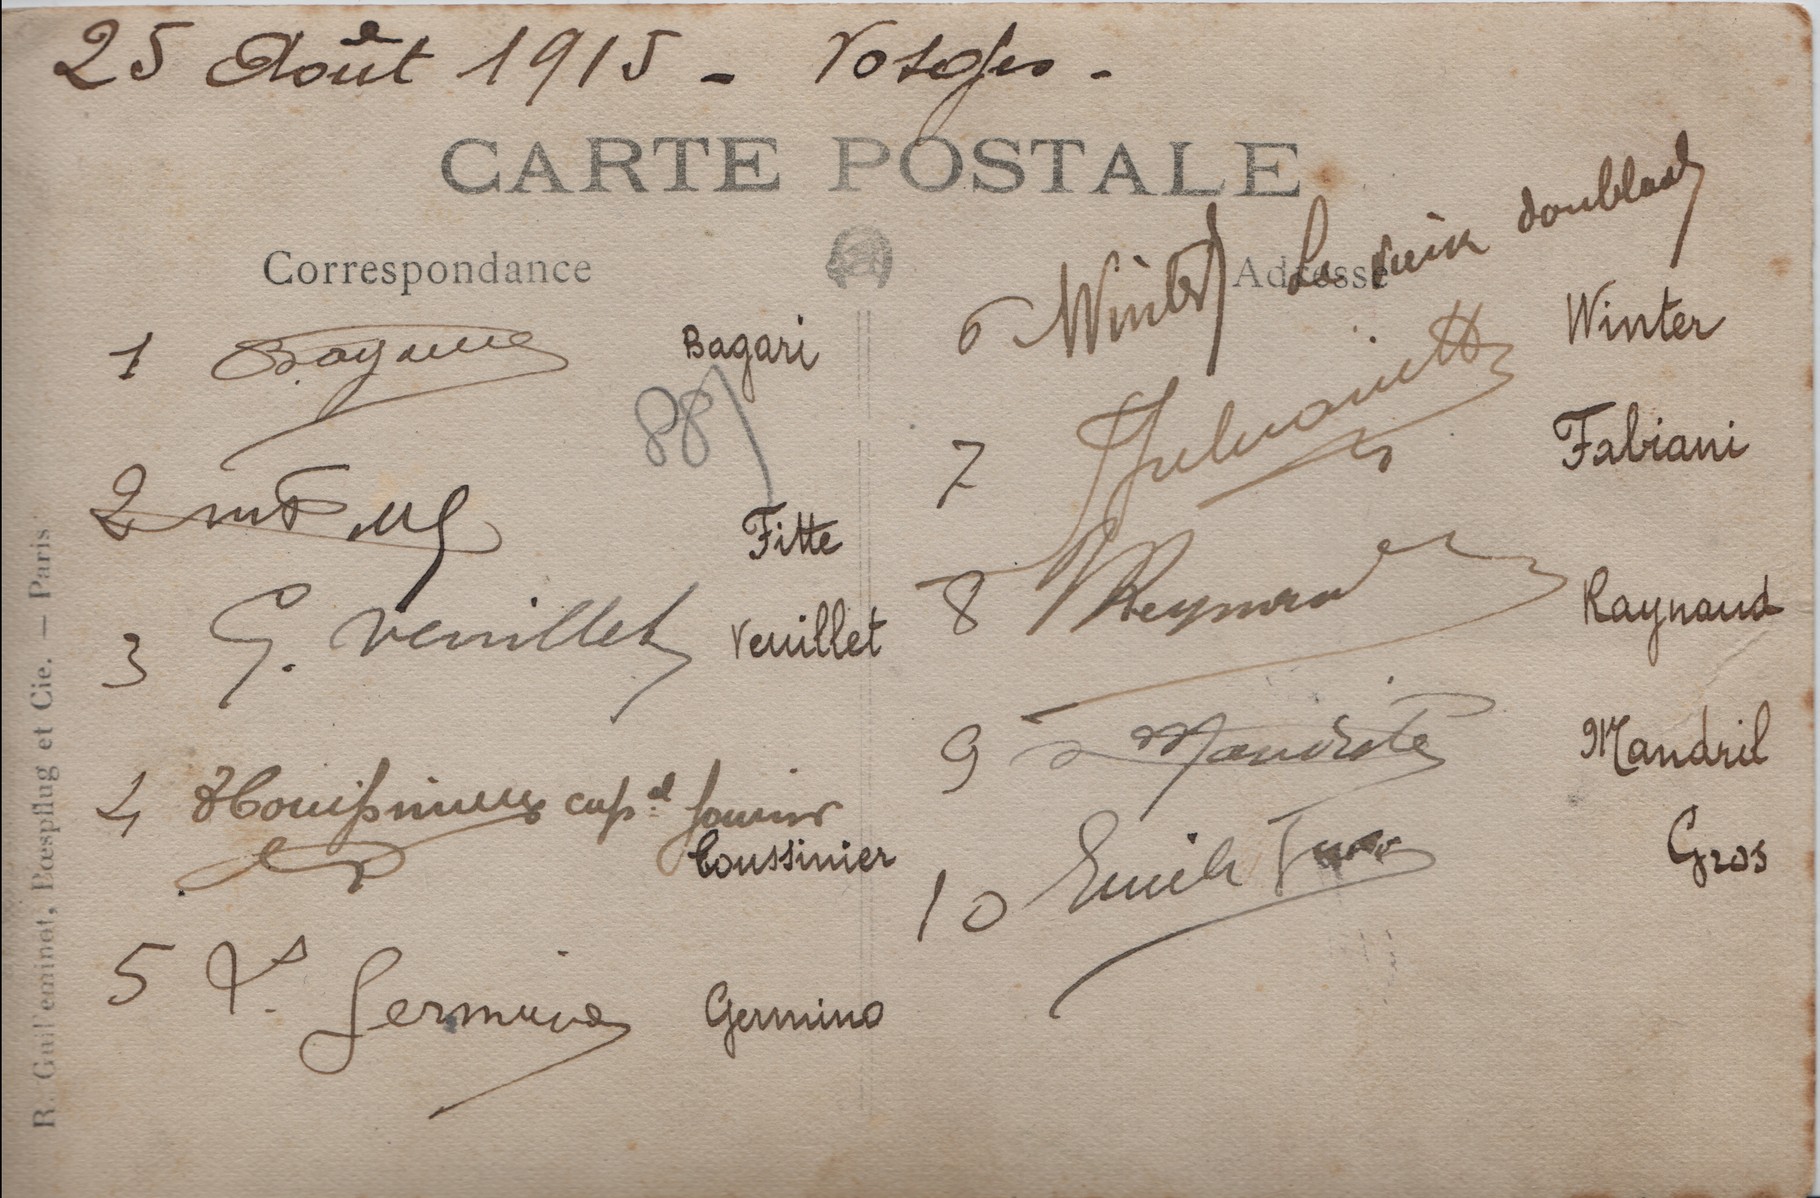 25 Août 1915 - Vosges -
CARTE POSTALE
Correspondance
Adresse
1 Bagari
88
2 Fitte
3 G. Veuillet Veuillet
4 cap.al
Coussinier
5 Germino Germino
6 Winter Le vieux
Winter
7 Fabiani
8 Reynaud Raynaud
9 Mandril
10 Emile Gros
R. Guilleminot, Bœspflug et Cie. — Paris